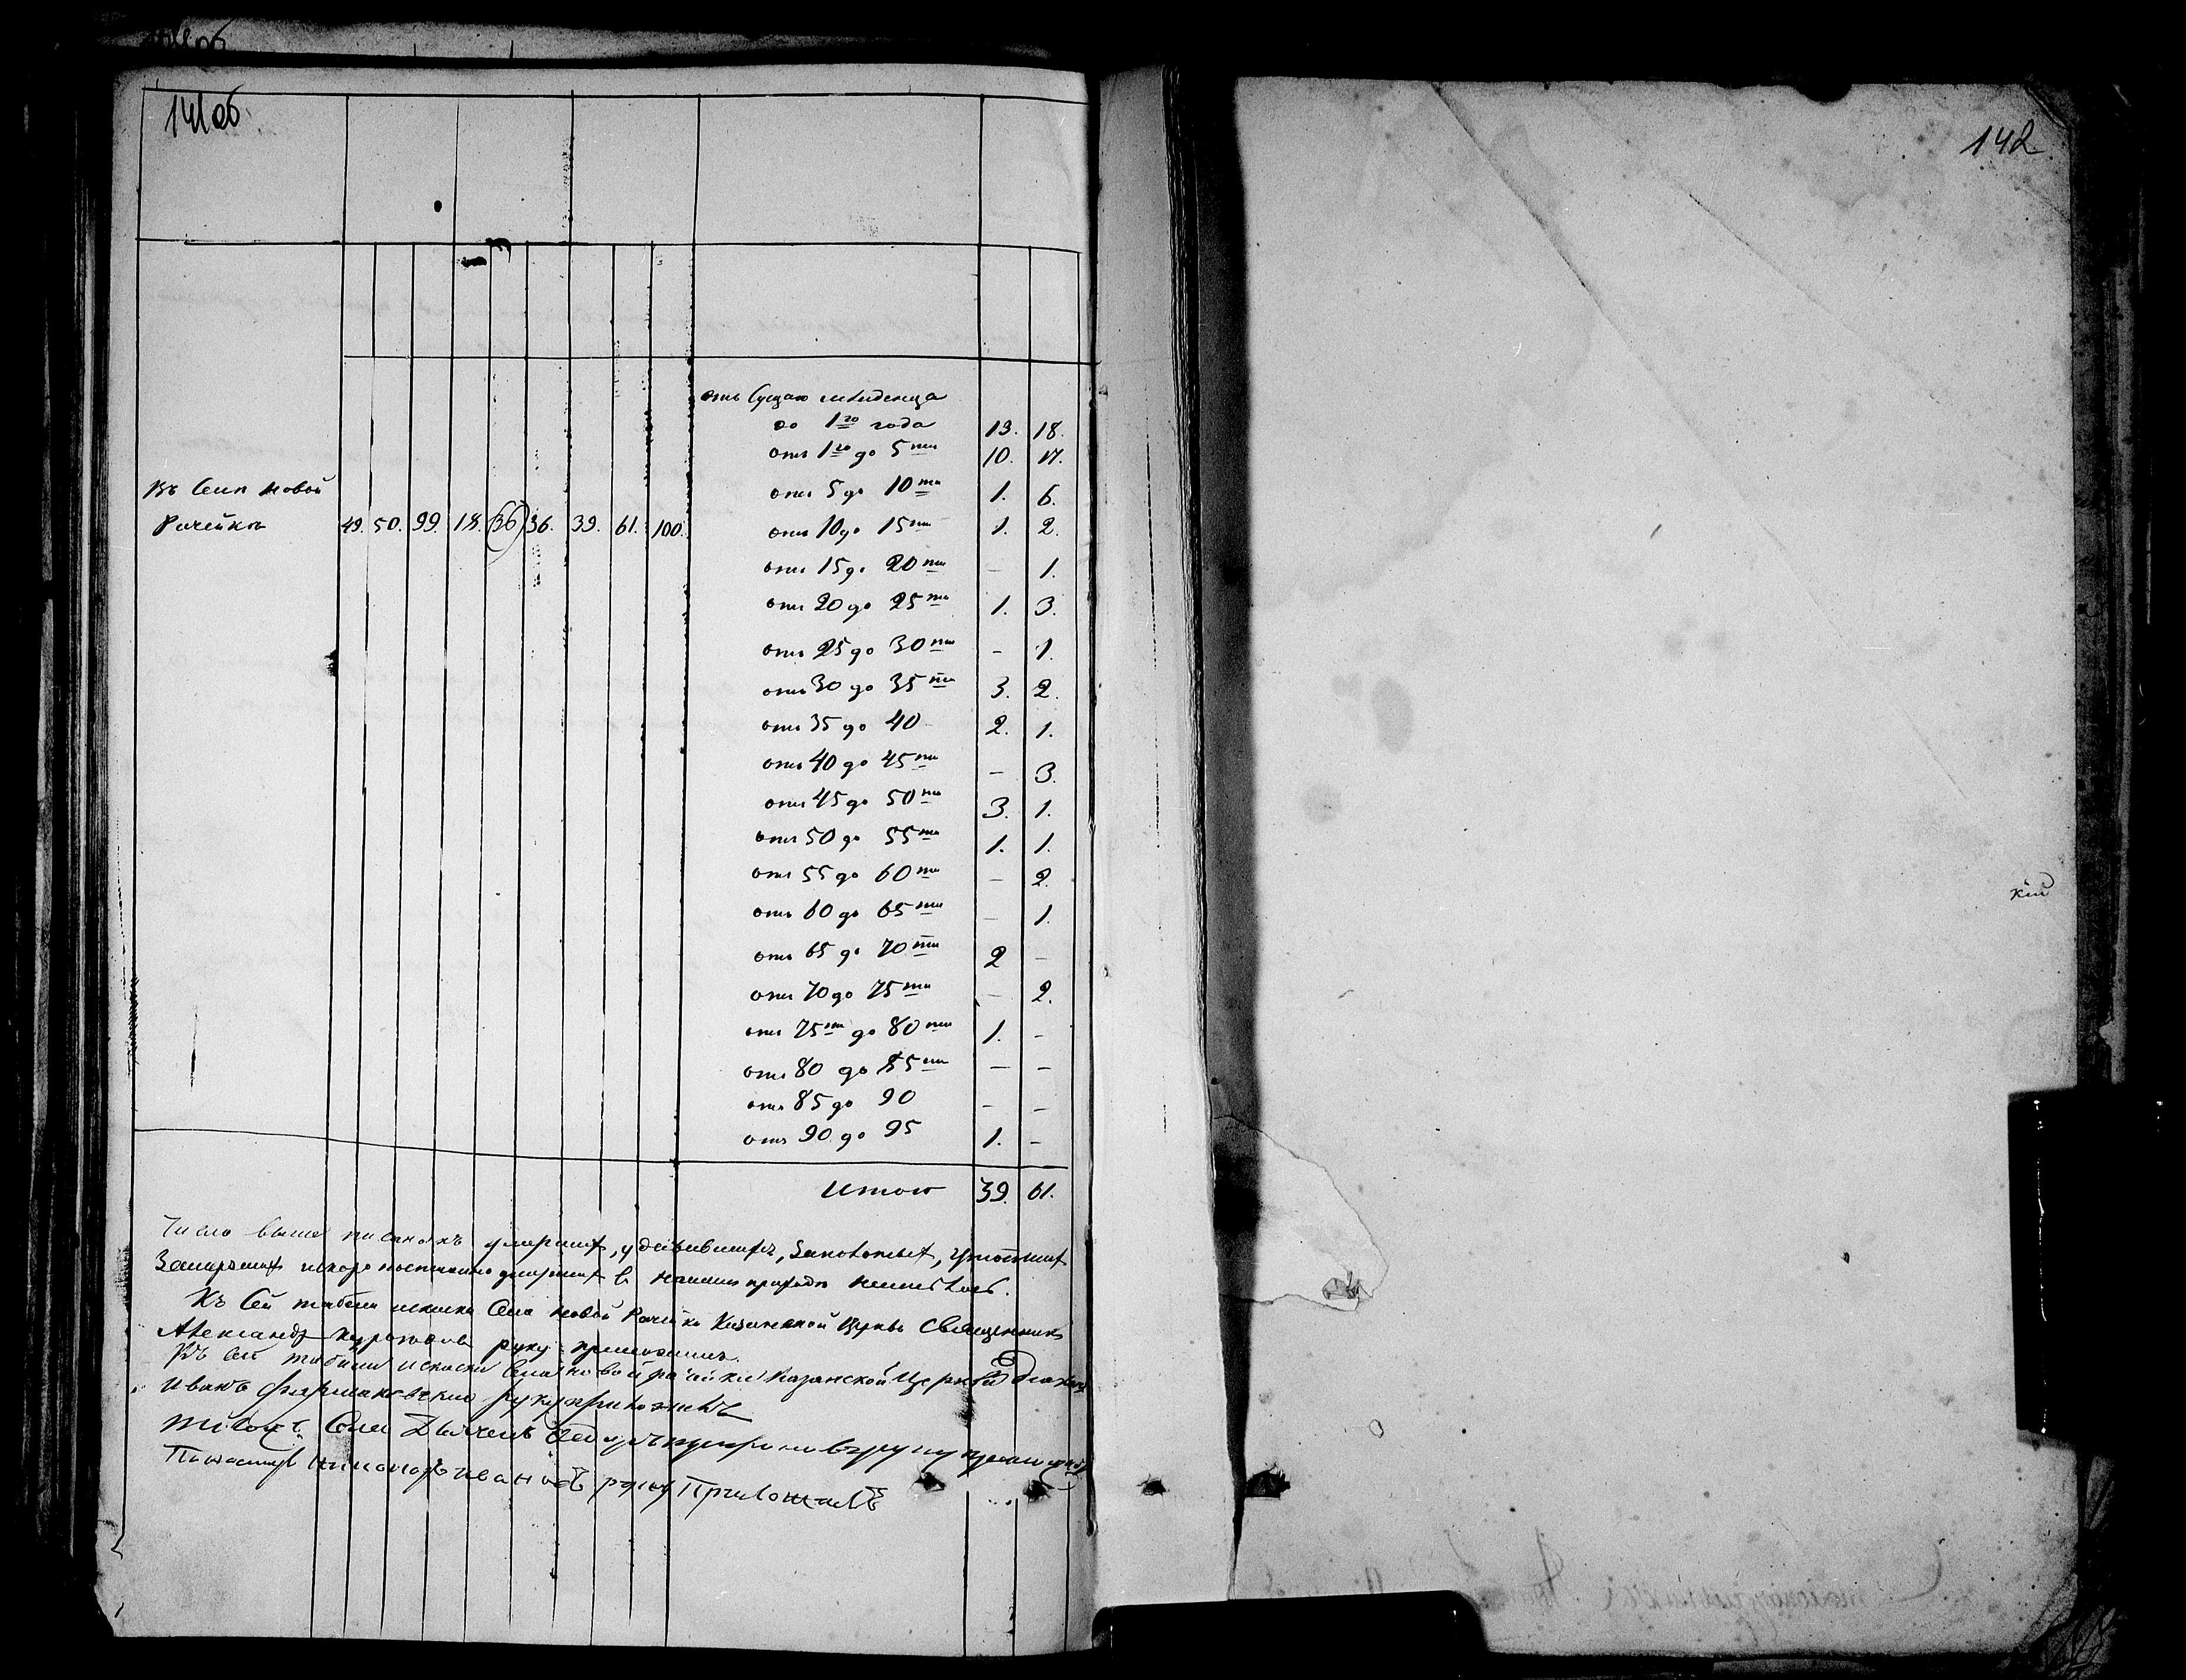 141 об
142
отъ Сущаго младенца
до 1го года 13. 18.
отъ 1го до 5ти 10. 17.
Въ Селѣ Новой
отъ 5 до 10ти 1. 6.
Рачейкѣ 49. 50. 99. 18. 36 36. 39. 61. 100.
отъ 10 до 15ти 1. 2.
отъ 15 до 20ти — 1.
отъ 20 до 25ти 1. 3.
отъ 25 до 30ти - 1.
отъ 30 до 35ти 3. 2.
отъ 35 до 40 2. 1.
отъ 40 до 45ти — 3.
отъ 45 до 50ти 3. 1.
отъ 50 до 55ти 1. 1.
отъ 55 до 60ти — 2.
отъ 60 до 65ти — 1.
отъ 65 до 70ти 2 —
отъ 70 до 75ти — 2.
отъ 75ти до 80ти 1. -
отъ 80 до 85ти — —
отъ 85 до 90 - —
отъ 90 до 95 1. —
Итого 39. 61.
Число выше писанныхъ умершихъ,
въ нашемъ приходѣ
Къ Сей табели Села Новой Рачейки Казанской Церкви Священникъ
Александръ руку приложилъ.
Къ сей табели Села новой рачейки Казанской Церкви Диаконъ
Иванъ руку приложилъ
Того Села Дьячекъ руку
Пономарь Ивановъ руку Приложилъ
кій